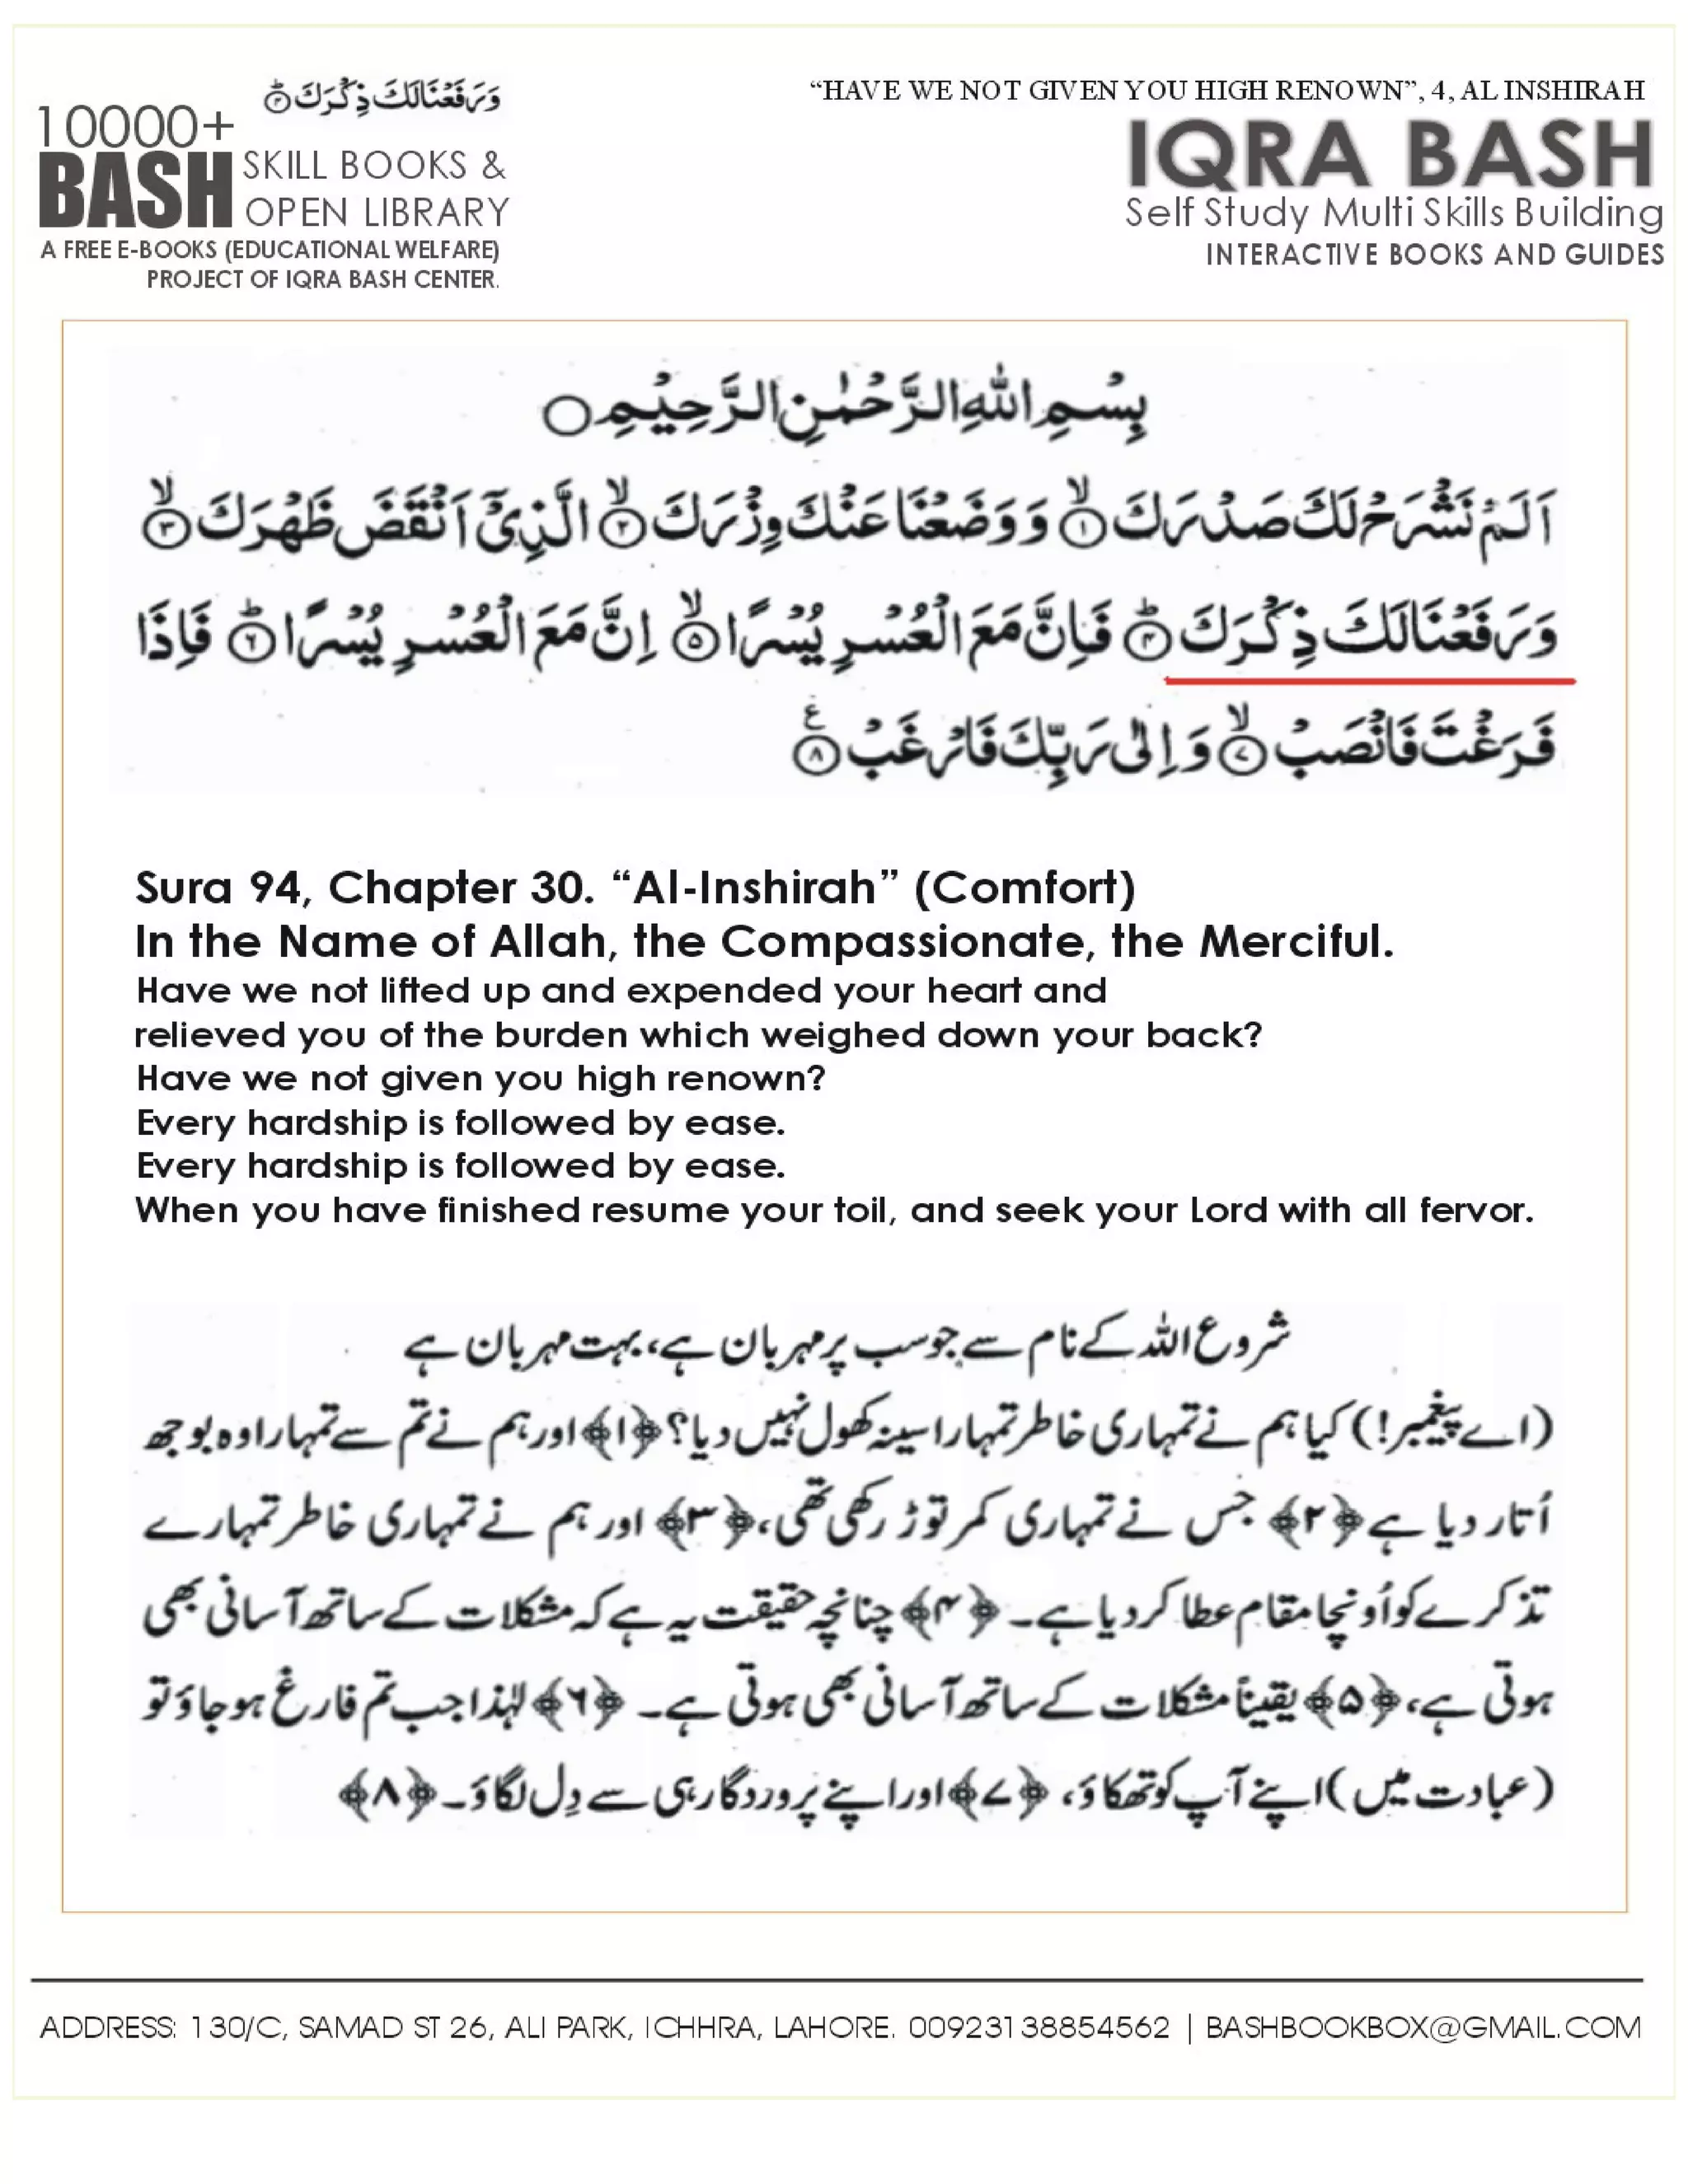 وَرَفَعْنَا لَكَ ذِكْرَكَ ؕ۴
10000+
BASH
SKILL BOOKS &
OPEN LIBRARY
A FREE E-BOOKS (EDUCATIONAL WELFARE)
PROJECT OF IQRA BASH CENTER.
“HAVE WE NOT GIVEN YOU HIGH RENOWN”, 4, AL INSHIRAH
IQRA BASH
Self Study Multi Skills Building
INTERACTIVE BOOKS AND GUIDES
بِسْمِ اللّٰهِ الرَّحْمٰنِ الرَّحِيْمِ ○
اَلَمْ نَشْرَحْ لَكَ صَدْرَكَ ۙ۱ وَوَضَعْنَا عَنْكَ وِزْرَكَ ۙ۲ الَّذِيْٓ اَنْقَضَ ظَهْرَكَ ۙ۳
وَرَفَعْنَا لَكَ ذِكْرَكَ ؕ۴ فَاِنَّ مَعَ الْعُسْرِ يُسْرًا ۙ۵ اِنَّ مَعَ الْعُسْرِ يُسْرًا ؕ۶ فَاِذَا
فَرَغْتَ فَانْصَبْ ۙ۷ وَاِلٰى رَبِّكَ فَارْغَبْ ۸ ع
Sura 94, Chapter 30. “Al-Inshirah” (Comfort)
In the Name of Allah, the Compassionate, the Merciful.
Have we not lifted up and expended your heart and
relieved you of the burden which weighed down your back?
Have we not given you high renown?
Every hardship is followed by ease.
Every hardship is followed by ease.
When you have finished resume your toil, and seek your Lord with all fervor.
شروع اللہ کے نام سے جو سب پر مہربان ہے، بہت مہربان ہے
(اے پیغمبر!) کیا ہم نے تمہاری خاطر تمہارا سینہ کھول نہیں دیا؟ ﴿۱﴾ اور ہم نے تم سے تمہارا وہ بوجھ
اُتار دیا ہے ﴿۲﴾ جس نے تمہاری کمر توڑ رکھی تھی، ﴿۳﴾ اور ہم نے تمہاری خاطر تمہارے
تذکرے کو اُونچا مقام عطا کر دیا ہے۔ ﴿۴﴾ چنانچہ حقیقت یہ ہے کہ مشکلات کے ساتھ آسانی بھی
ہوتی ہے، ﴿۵﴾ یقیناً مشکلات کے ساتھ آسانی بھی ہوتی ہے۔ ﴿۶﴾ لہٰذا جب تم فارغ ہو جاؤ تو
(عبادت میں) اپنے آپ کو تھکاؤ، ﴿۷﴾ اور اپنے پروردگار ہی سے دِل لگاؤ۔ ﴿۸﴾
ADDRESS: 130/C, SAMAD ST 26, ALI PARK, ICHHRA, LAHORE. 00923138854562 | BASHBOOKBOX@GMAIL.COM